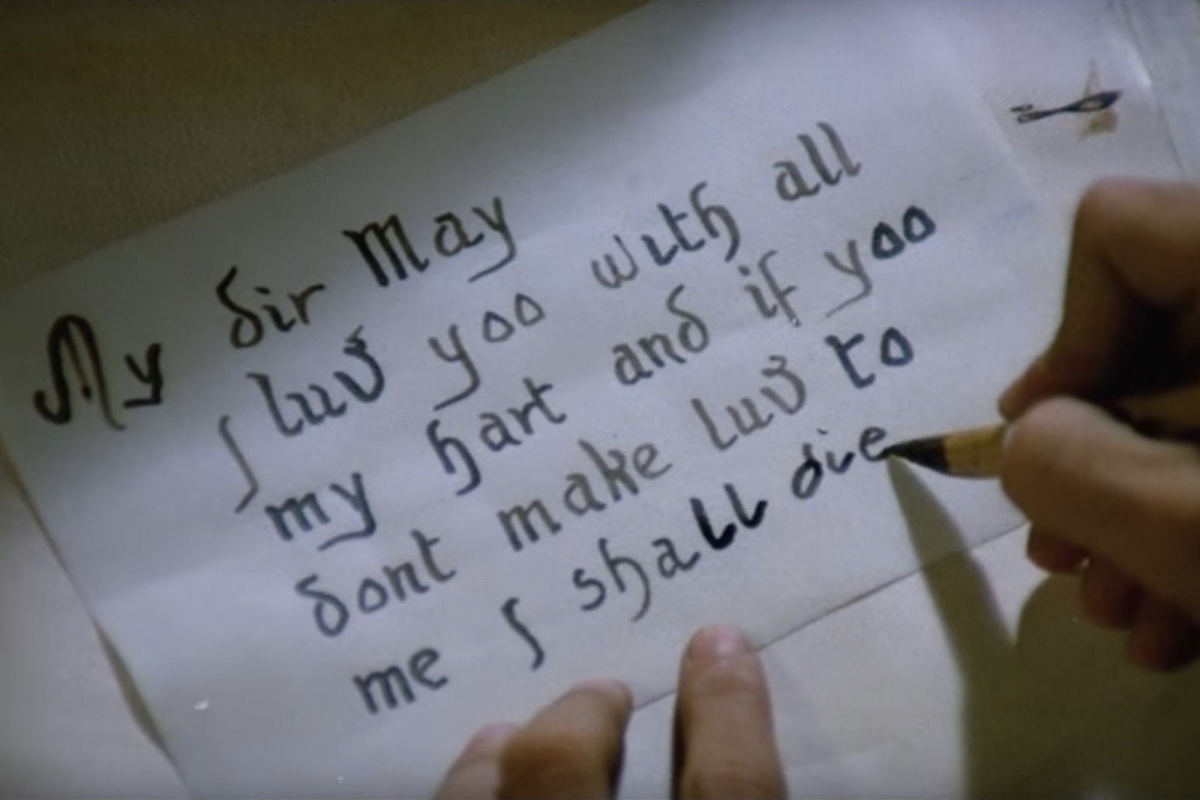 My dir May
I luv yoo with all
my hart and if yoo
dont make luv to
me I shall die